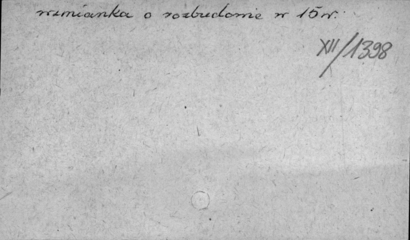 wzmianka o rozbudowie w 15 w.
XII/1398